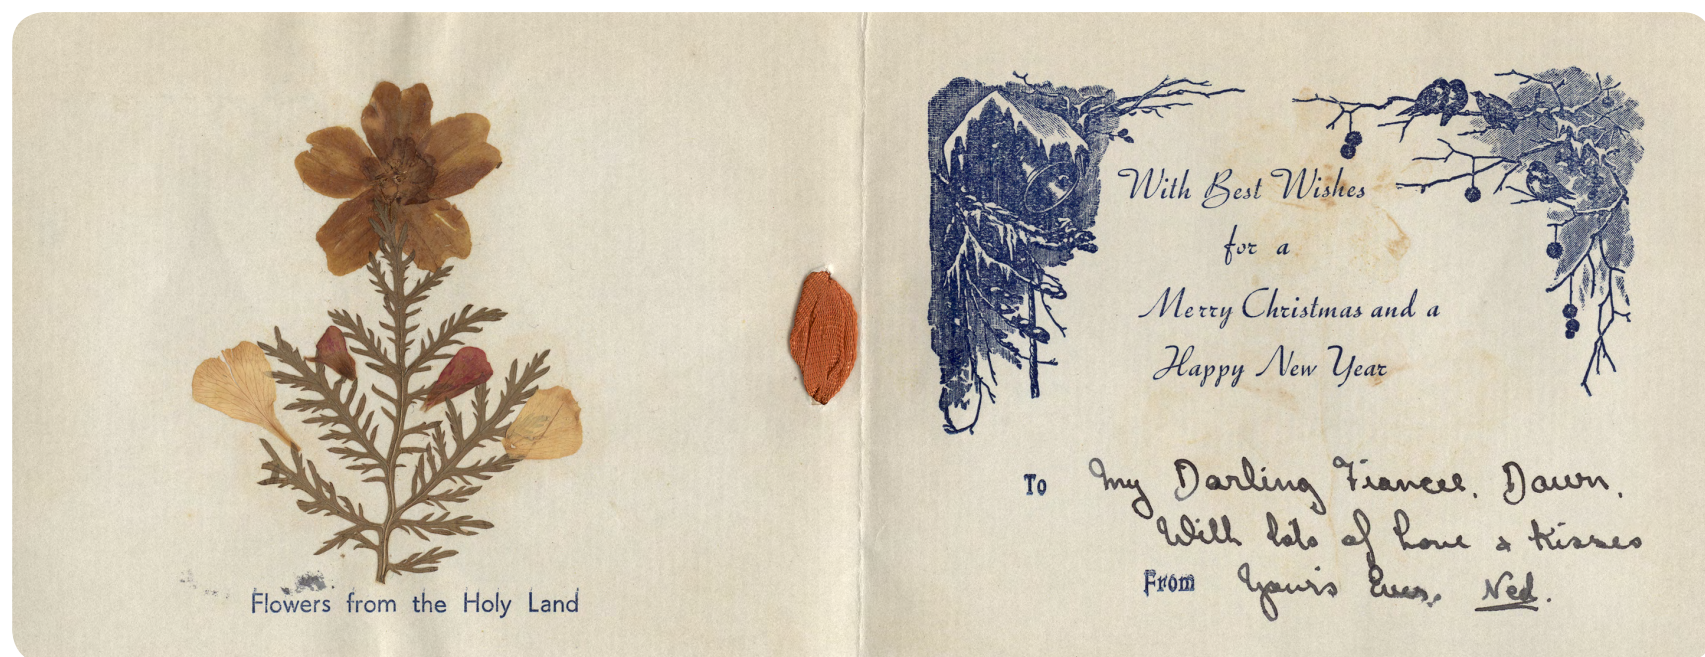 Flowers from the Holy Land
With Best Wishes
for a
Merry Christmas and a
Happy New Year
To My Darling Fiancee, Dawn,
With lots of Love & Kisses
From Yours Ever, Ned.